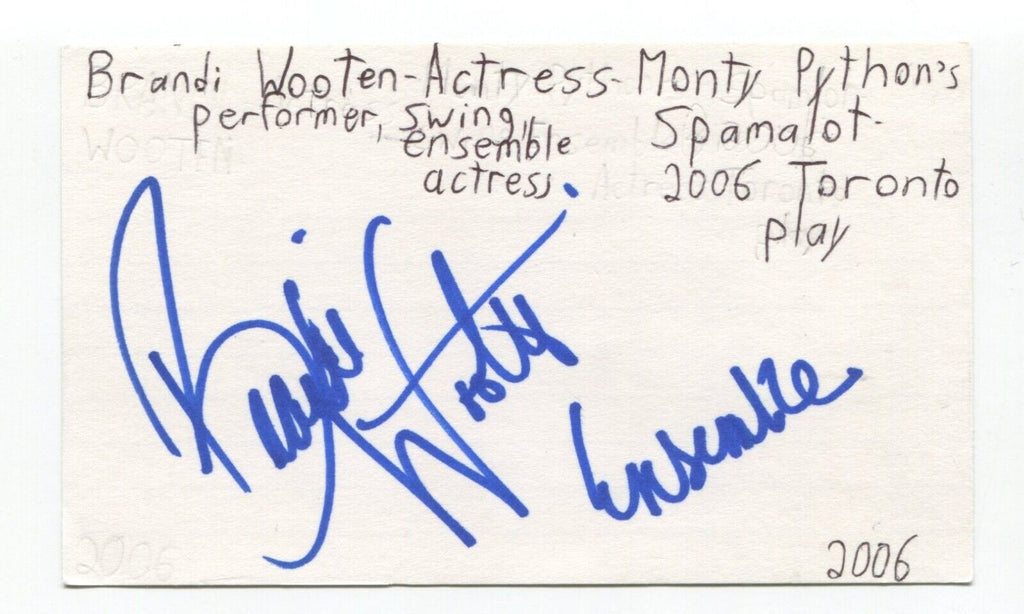 Brandi Wooten-Actress-Monty Python's
performer, swing, Spamalot-
ensemble
actress. 2006 Toronto
play
Brandi Wooten
Ensemble
2006
WOOTEN
2006